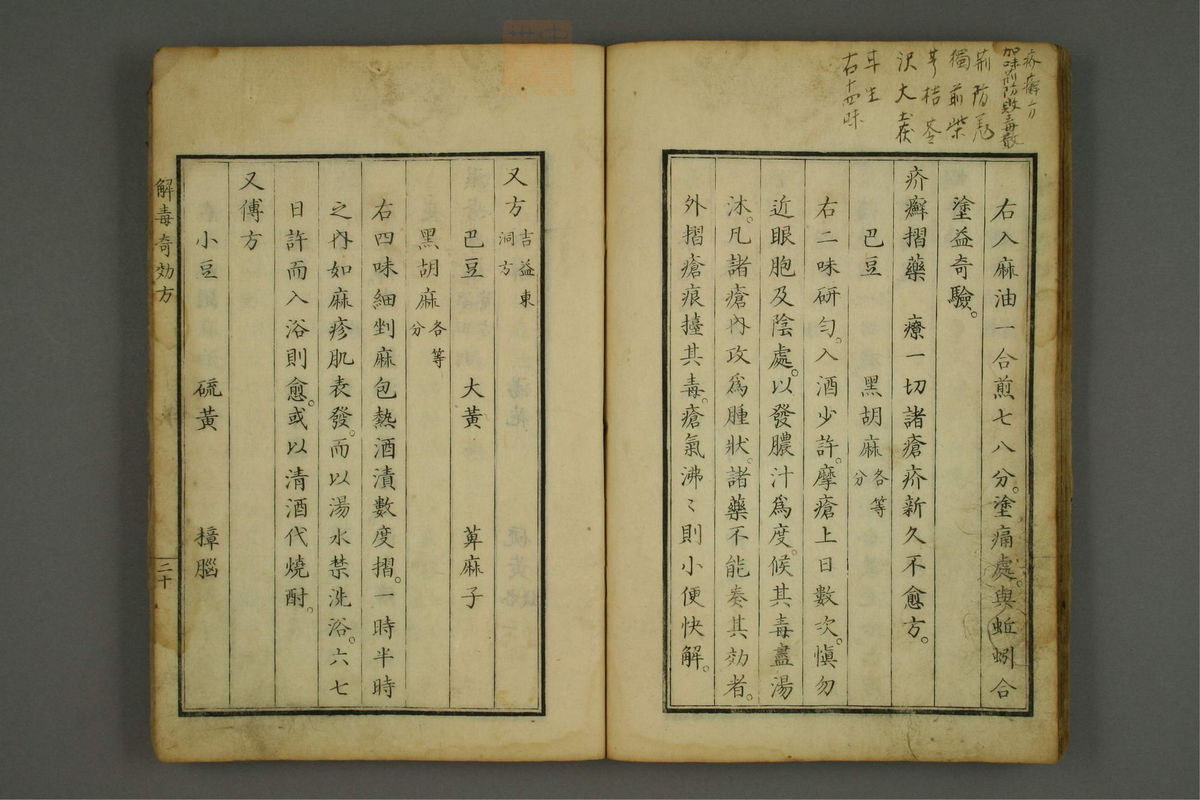 疥癬方
加味荊防敗毒散
荊防
獨前柴
芎桔苓
沢大茯
右十四味
右入麻油一合煎七八分。塗痛處。與蚯蚓合
塗益奇驗。
疥癬摺藥　療一切諸瘡疥新久不愈方。
巴豆　黑胡麻各等分
右二味研勻。入酒少許。摩瘡上日數次。愼勿
近眼胞及陰處。以發膿汁爲度。候其毒盡湯
沐。凡諸瘡內攻爲腫狀。諸藥不能奏其効者。
外摺瘡痕擡其毒。瘡氣沸〻則小便快解。
又方吉益東洞方
巴豆　大黃　萆麻子
黑胡麻各等分
右四味細剉麻包熱酒漬數度摺。一時半時
之內如麻疹肌表發。而以湯水禁洗浴。六七
日許而入浴則愈。或以清酒代燒酎。
又傅方
小豆　硫黃　樟腦
解毒奇効方
二十